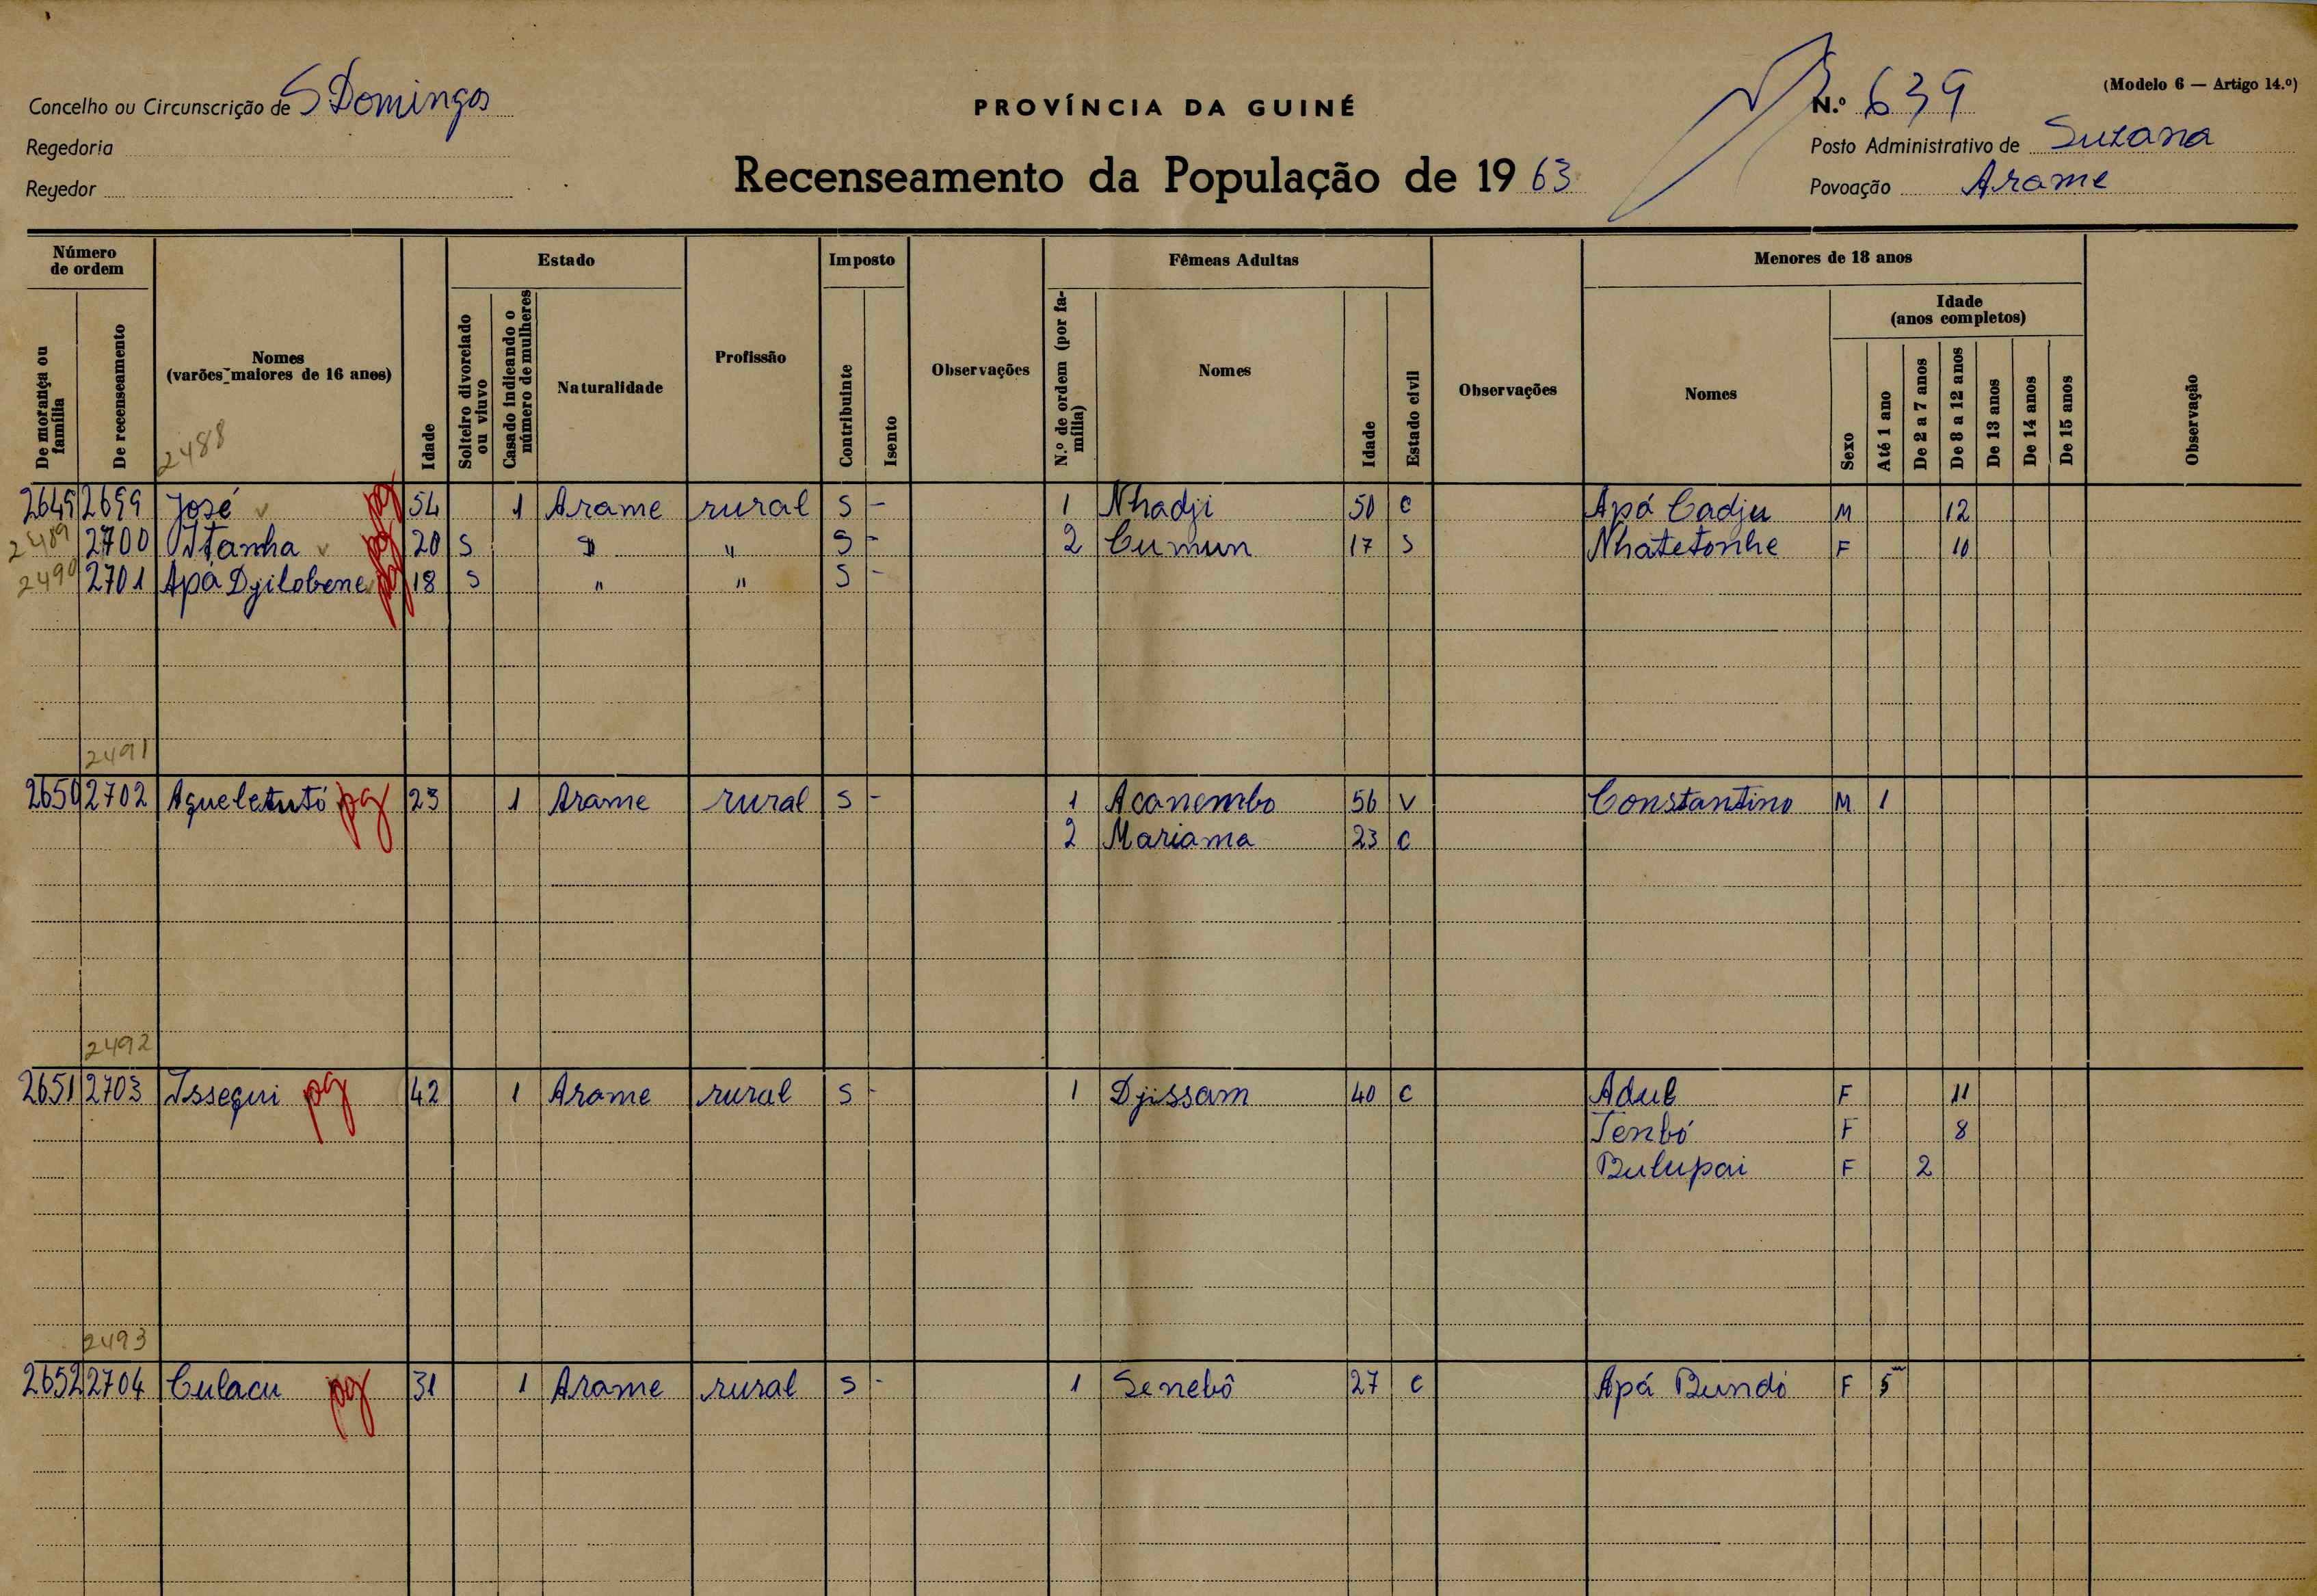 (Modelo 6 — Artigo 14.º)
Concelho ou Circunscrição de S Domingos
PROVÍNCIA DA GUINÉ
N.º 639
Regedoria
Posto Administrativo de Suzana
Regedor
Recenseamento da População de 1963
Povoação Arame
Número de ordem
De morança ou família
De recenseamento
Nomes (varões maiores de 16 anos)
2488
Idade
Estado
Solteiro divorciado ou viuvo
Casado indicando o número de mulheres
Naturalidade
Profissão
Imposto
Contribuinte
Isento
Observações
Fêmeas Adultas
N.º de ordem (por família)
Nomes
Idade
Estado civil
Observações
Menores de 18 anos
Nomes
Sexo
Idade (anos completos)
Até 1 ano
De 2 a 7 anos
De 8 a 12 anos
De 13 anos
De 14 anos
De 15 anos
Observação
2649 2699 José pg 54 1 Arame rural S - 1 Nhadji 50 C Apá Cadju M 12
2489 2700 Itanha pg 20 S " " S - 2 Cumun 17 S Nhatetonhe F 10
2490 2701 Apá Djilobene pg 18 S " " S -
2491
2650 2702 Aqueletutó pg 23 1 Arame rural S - 1 Acanembo 56 V Constantino M 1
2 Mariama 23 C
2492
2651 2703 Issequi pg 42 1 Arame rural S - 1 Djissam 40 C Adul F 11
Tenbó F 8
Bulupai F 2
2493
2652 2704 Culacu pg 31 1 Arame rural S - 1 Senebô 27 C Apá Bundó F 5